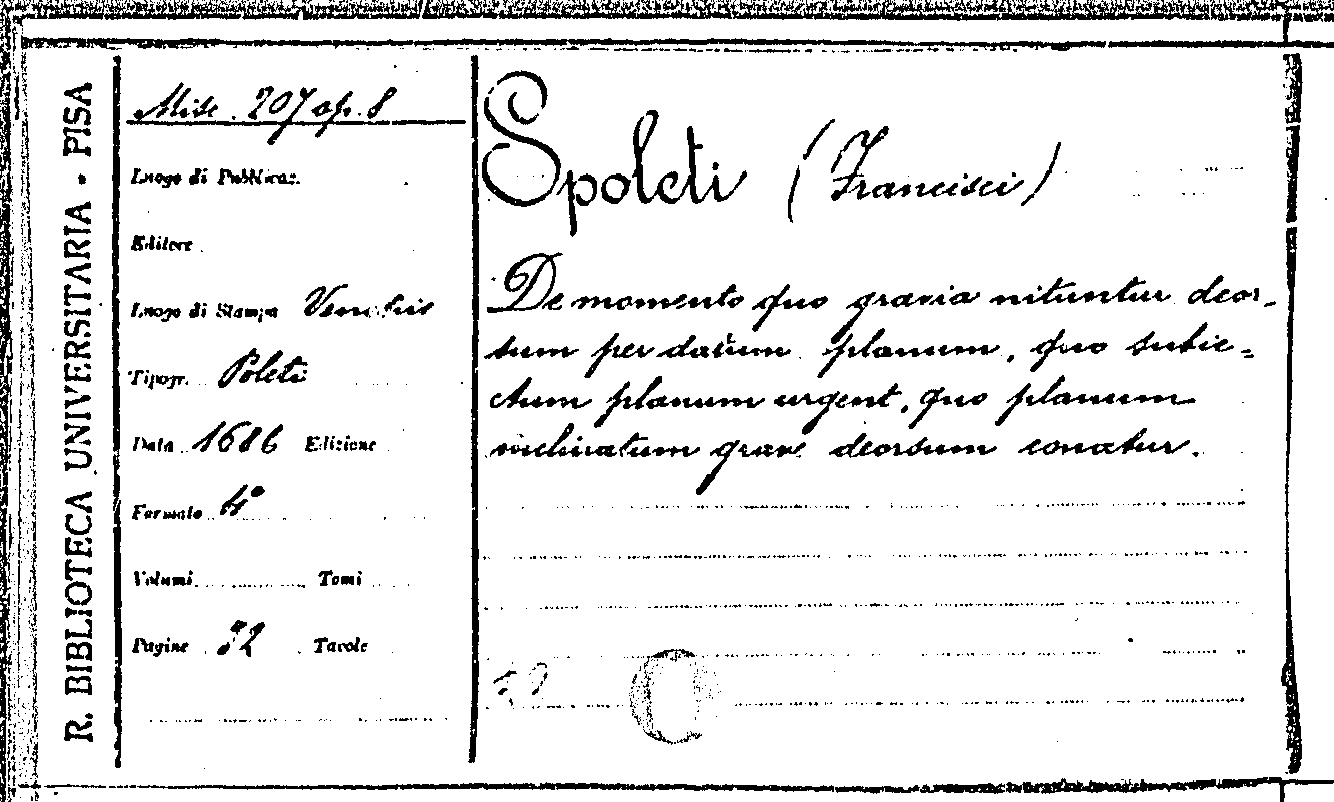 R. BIBLIOTECA UNIVERSITARIA - PISA
Misc. 207 op. 8
Luogo di Pubblicaz.
Editore
Luogo di Stampa Venetiis
Tipogr. Poleti
Data 1686 Edizione
Formato 4°
Volumi Tomi
Pagine 32 Tavole
Spoleti (Francisci)
De momento quo gravia nituntur deor-
sum per datum planum, quo subie-
ctum planum urgent, quo planum
inclinatum grave deorsum conatur.